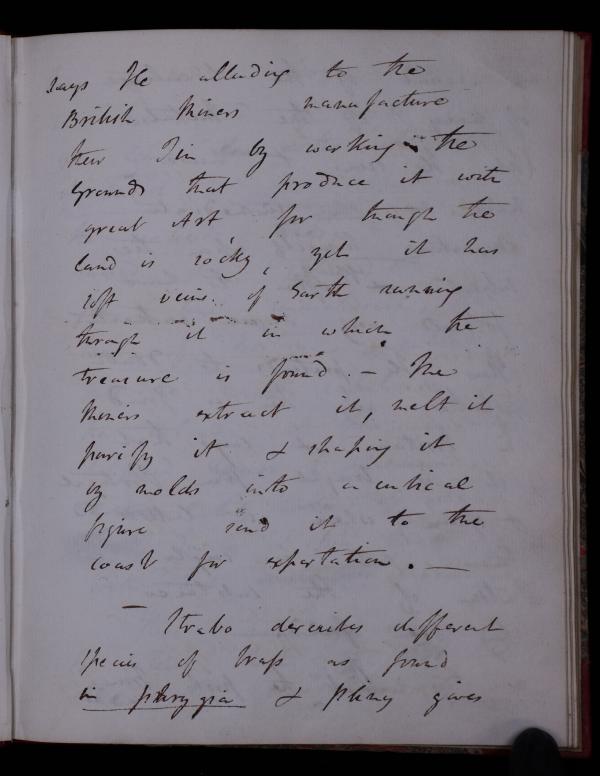 says He alluding to the
British Miners manufacture
their Tin by working the
Grounds that produce it with
great Art for though the
land is rocky, yet it has
soft veins of Earth running
through it in which the
treasure is found. — The
Miners extract it, melt it
purify it & shaping it
by molds into a cubical
figure send it to the
coast for exportation. —
Strabo describes different
species of brass as found
in phrygia & Pliny gives